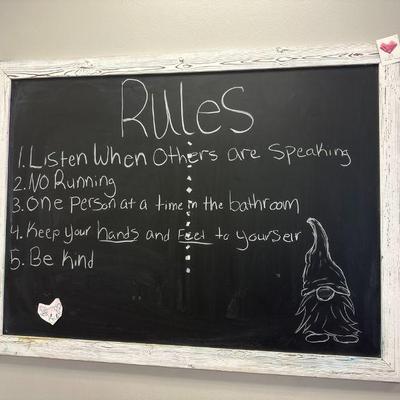 Rules
1. Listen When Others are Speaking
2. No Running
3. One Person at a time in the bathroom
4. Keep your hands and Feet to yourself
5. Be Kind